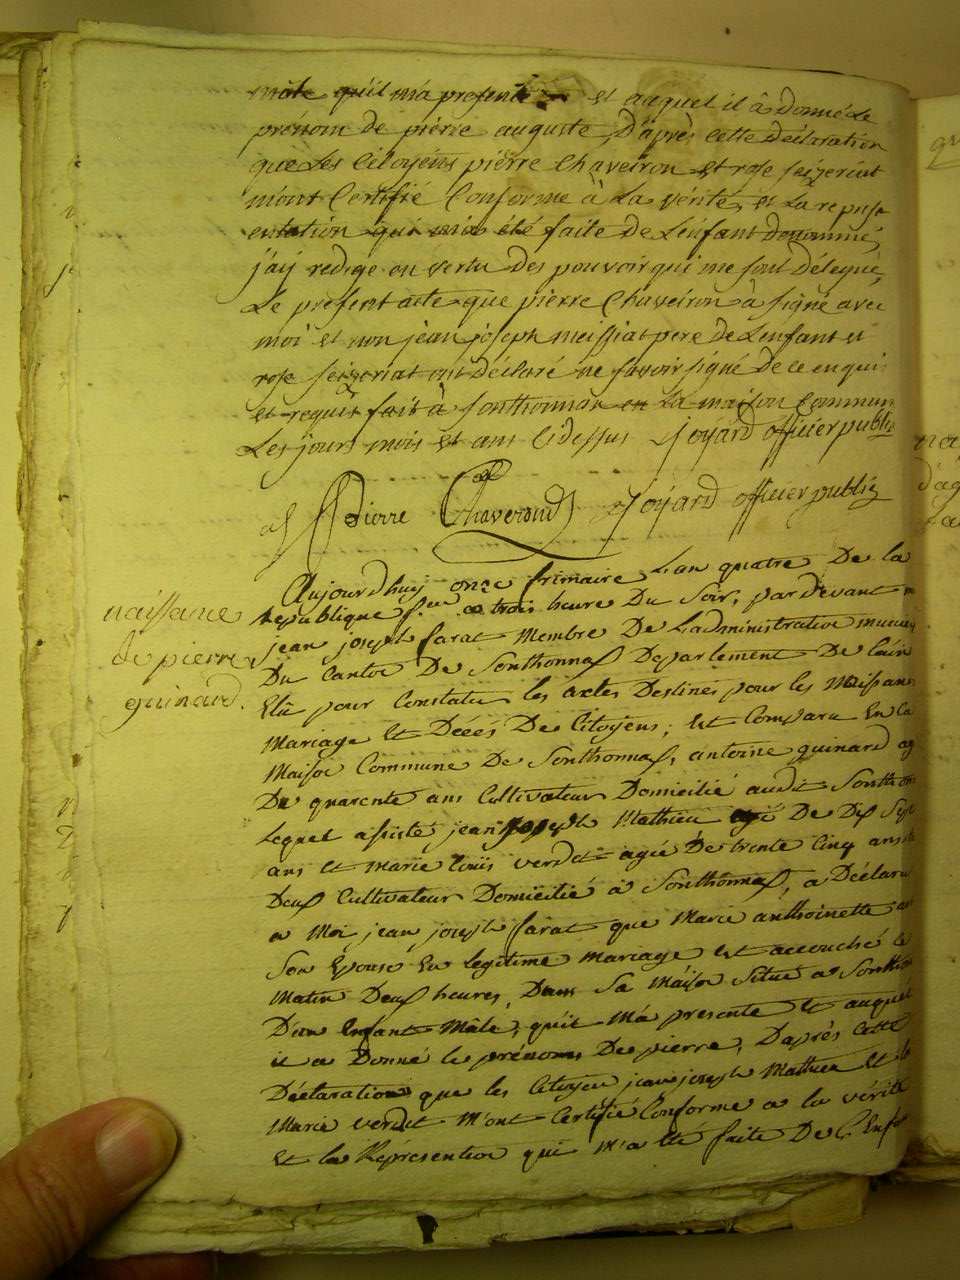 mâle qu'il m'a présenté et auquel il â donné Le
prénom de pierre auguste, D'après cette déclaration
que Les Citoyens pierre Chaveiron et rose seizeriat
m'ont Certifié Conforme à La vérité, et La represe
entation qui m'a été faite de L'enfant denommé,
j'aij redigé en vertu des pouvoir qui me sont Délegué,
Le present acte que pierre Chaveiron à signé avec
moi et non jean joseph meissiat pere de L'enfant et
rose seizeriat ont déclaré ne savoir signé de ce enquis
et requis fait à sonthonnax en La maison Commune
Les jours mois et ans Cidessus joyard officier public
Pierre Chaverond joyard officier public
naissance
de pierre
guinard.
Aujourd'huy onze frimaire L'an quatre De la
republique a trois heure Du Soir, par devant m
jean joseph farat Membre De L'administration munici
Du Canton De Sonthonnax Departement De L'ain
Elû pour Constater les actes Destiné pour les Naissances
Mariage et Décès De Citoyens, est Comparu En La
Maison Commune De Sonthonnax, antoine guinard ag
De quarente ans Cultivateur Domicilié audit Sonthon
Lequel assisté jean joseph Mathieu agé De Dix Sept
ans et Marie Louis verdet agée De trente Cinq ans
Deux Cultivateur Domicilié a Sonthonnax, a Déclaré
a Moi jean joseph farat que Marie anthoinette
Son Epouse En legitime Mariage est accouché le
Matin Deux heures, Dans Sa Maison Situé a Sonthon
D'un enfant Mâle, qu'il M'a presenté et auquel
il a Donné le prénoms De pierre, D'après Cette
Déclaration que les Citoyen jean joseph Mathieu Et
Marie verdet M'ont Certifié Conforme a la vérité
et la Représention qui M'a été faite De L'Enfan